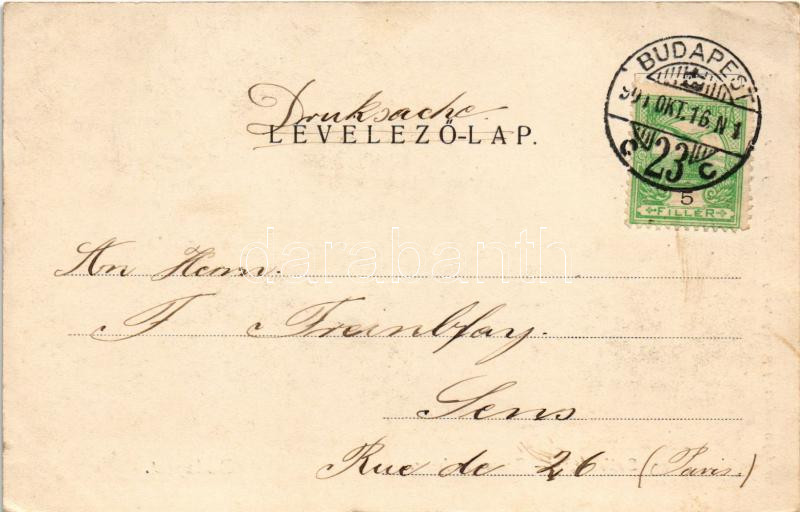 BUDAPEST
901 OKT. 16 N 1
23
C C
5
FILLÉR
Druksache.
LEVELEZŐ-LAP.
darabanth
An Herrn.
F Freinbfay.
Sens
Rue de 26 (Paris.)